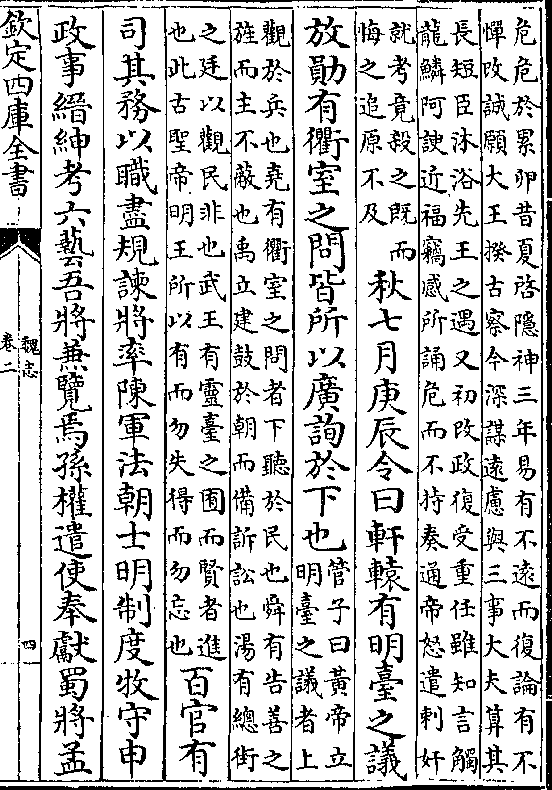 危危於累卵昔夏啓隱神三年易有不遠而復論有不
憚改誠願大王揆古察今深謀遠慮與三事大夫算其
長短臣沐浴先王之遇又初改政復受重任雖知言觸
龍鱗阿諛近福竊感所誦危而不持奏通帝怒遣刺奸
就考竟殺之既而
悔之追原不及
秋七月庚辰令曰軒轅有明臺之議
放勛有衢室之問皆所以廣詢於下也
管子曰黃帝立
明臺之議者上
觀於兵也堯有衢室之問者下聽於民也舜有告善之
旌而主不蔽也禹立建鼓於朝而備訴訟也湯有總街
之廷以觀民非也武王有靈臺之囿而賢者進
也此古聖帝明王所以有而勿失得而勿忘也
百官有
司其務以職盡規諫將率陳軍法朝士明制度牧守申
政事縉紳考六藝吾將兼覽焉孫權遣使奉獻蜀將孟
欽定四庫全書
魏志
卷二
四